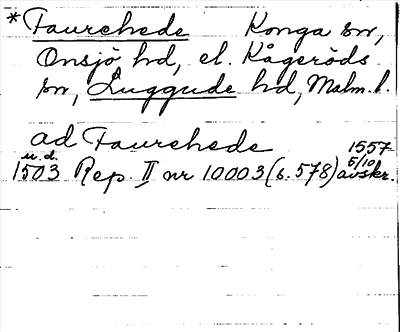 *Faurehede Konga sn,
Onsjö hd, el. Kågeröds
sn, Luggude hd, Malm. l.
ad Faurehede 1557
u.d. 5/10
1503 Rep. II nr 10003 (s. 578) avskr.